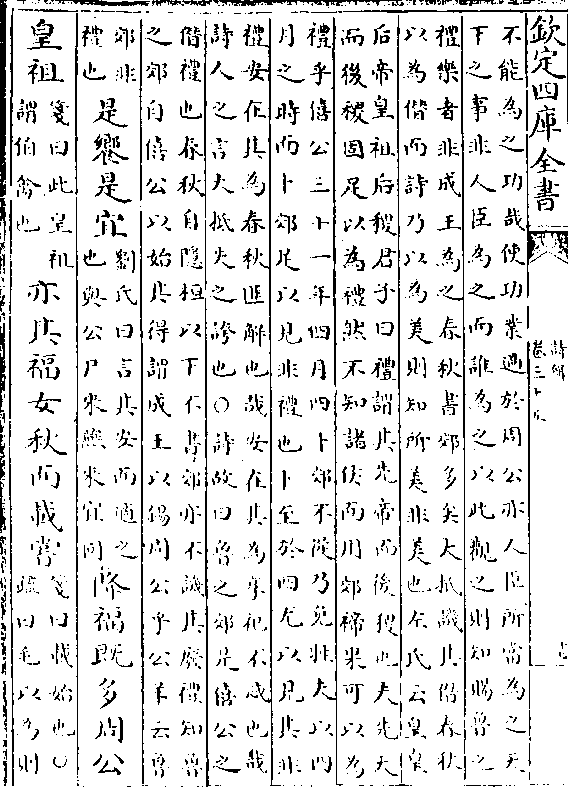 欽定四庫全書
詩緝
卷三十五
不能為之功哉使功業過於周公亦人臣所當為之天
下之事非人臣為之而誰為之以此觀之則知賜魯之
禮樂者非成王為之春秋書郊多矣大抵譏其僭春秋
以為僭而詩乃以為美則知所美非美也左氏云皇皇
后帝皇祖后稷君子曰禮謂其先帝而後稷也夫先天
而後稷固足以為禮然不知諸侯而用郊禘果可以為
禮乎僖公三十一年四月四卜郊不從乃免牲夫以四
月之時而卜郊足以見非禮也卜至於四尤以見其非
禮安在其為春秋匪解也哉安在其為享祀不忒也哉
詩人之言大抵失之誇也○詩故曰魯之郊是僖公之
僭禮也春秋自隱桓以下不書郊亦不譏其廢禮知魯
之郊自僖公以始其得謂成王以錫周公乎公羊云魯
郊非
禮也
是饗是宜
劉氏曰言其安而適之
也與公尸來燕來宜同
降福既多周公
皇祖
箋曰此皇祖
謂伯禽也
亦其福女秋而載嘗
箋曰載始也○
疏曰毛以為則